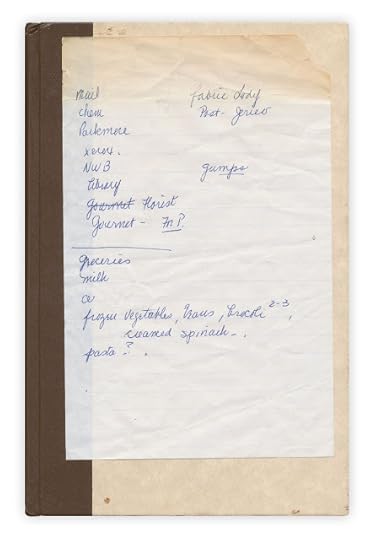 mail
chem
Parkmore
xerox.
NWB
library
gourmet florist
Gourmet - Fr P.
fabric Lady
Post - Jerico
gumps
groceries
milk
frozen vegetables, beans, brocoli 2-3,
creamed spinach -.
pasta ? .